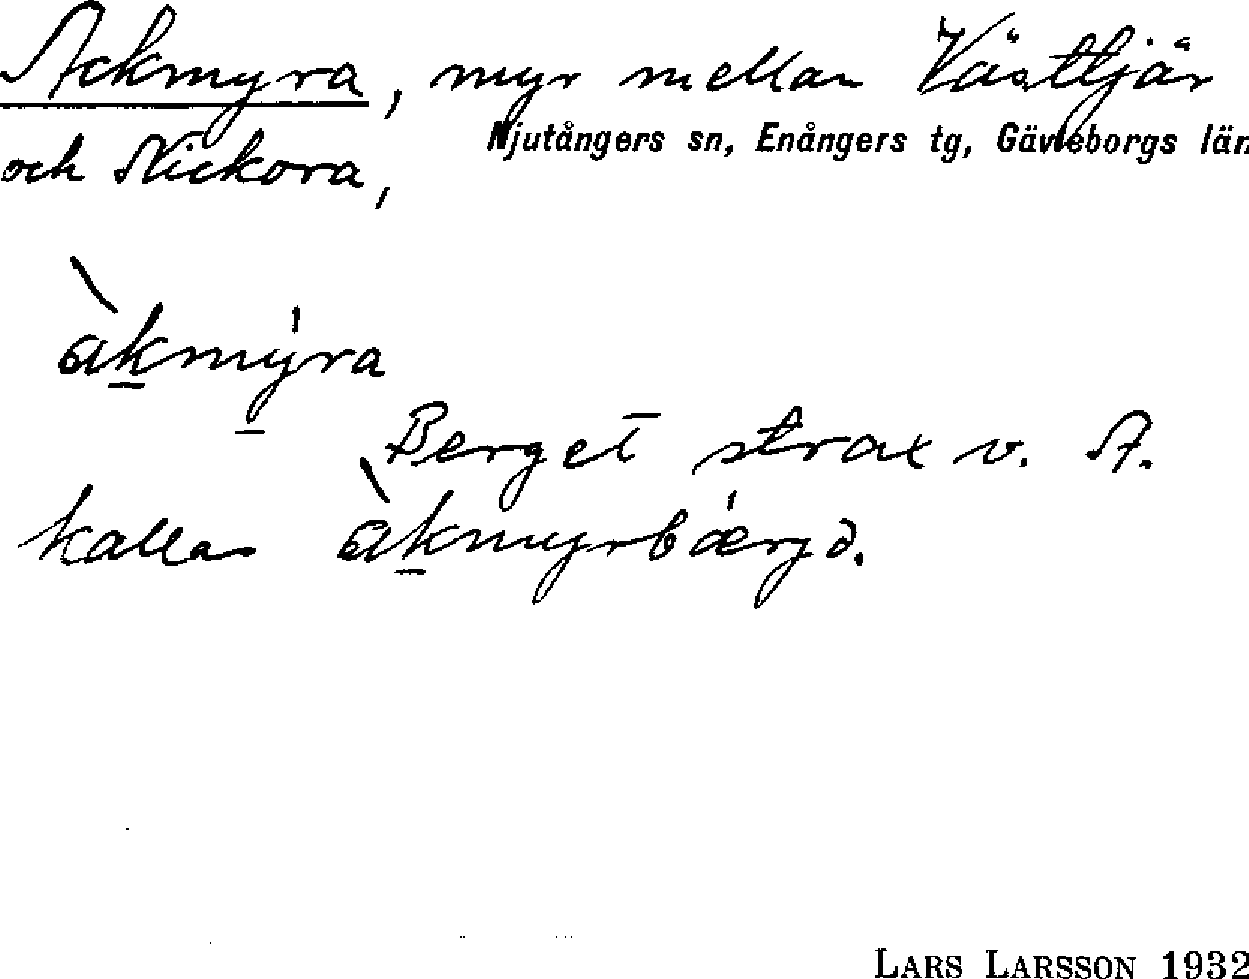 Ackmyra, myr mellan Västtjär
Njutångers sn, Enångers tg, Gävleborgs län
och Nickora,
àk̲mý̲ra
Berget strax v. A.
kallas àk̲myrbǽrjə.
LARS LARSSON 1932